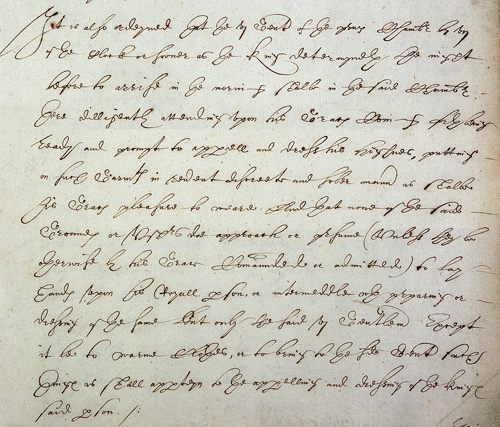 It is also ordeyned that the vj Gent of the privy Chambr by vij
of the Clock or sooner as the King determyneth the night
before to arrise in the morning shalbe in the said Chambr
there dilligently attending upon his Graces coming forth being
ready and prompt to apparell and dresse his Highnes, putting
on such Garments in reverent discreete and sober manner as shalbe
his Graces pleasure to weare. And that none of the said
Groomes or Ushers doe approach or presume (unlesse they be
otherwise by his Grace Commanded or admitted) to lay
hands upon his Royall person, or intermeddle with preparing or
dressing of the same but only the said vj Gentlem Except
it be to warme Clothes, or to bring to the said Gent such
things as shall apperteyn to the apparelling and dressing of the Kings
said person.